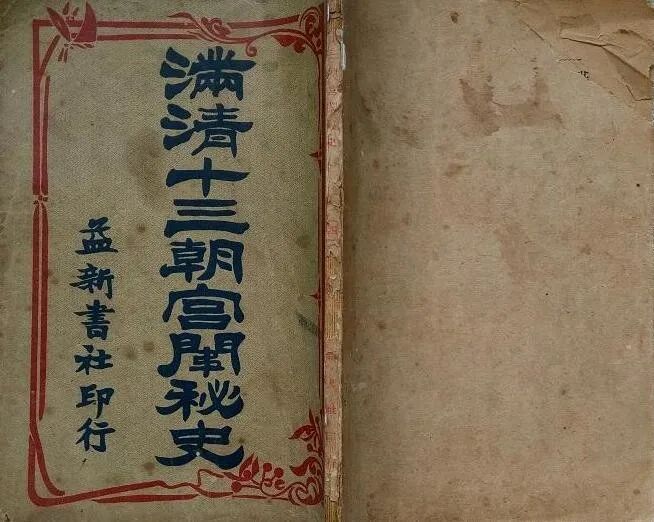 滿清十三朝宮闈秘史
益新書社印行